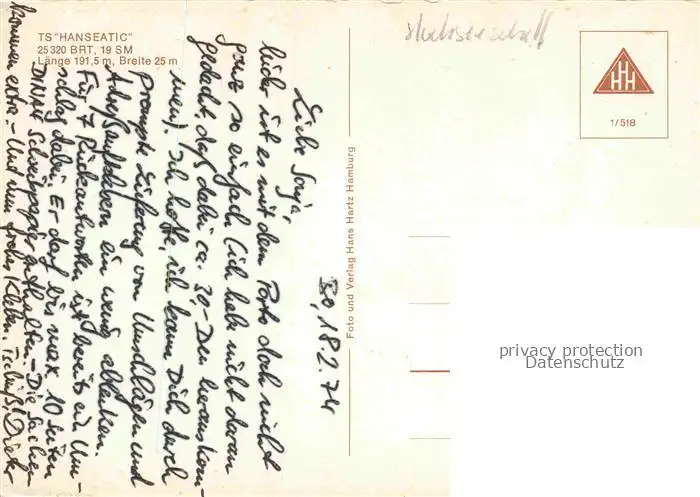 TS "HANSEATIC"
25 320 BRT, 19 SM
Länge 191,5 m, Breite 25 m
Bo, 18.2.74
Liebe Sonja,
leider ist es mit dem Porto doch nicht
ganz so einfach (ich habe nicht daran
gedacht, daß dabei ca. 30,- DM herauskom-
men). Ich hoffe, ich kann Dich durch
prompte Lieferung von Umschlägen und
Adreßaufklebern ein wenig
Für 7 Rückantworten ist bereits ein Um-
schlag dabei. Er darf bis max. 10 Seiten
DINA4 Schreibpapier enthalten. - Die Sachen
kommen extra. - Und nun frohes Kleben. Tschüß! Dieter
Foto und Verlag Hans Hartz Hamburg
HHH
1/518
privacy protection
Datenschutz